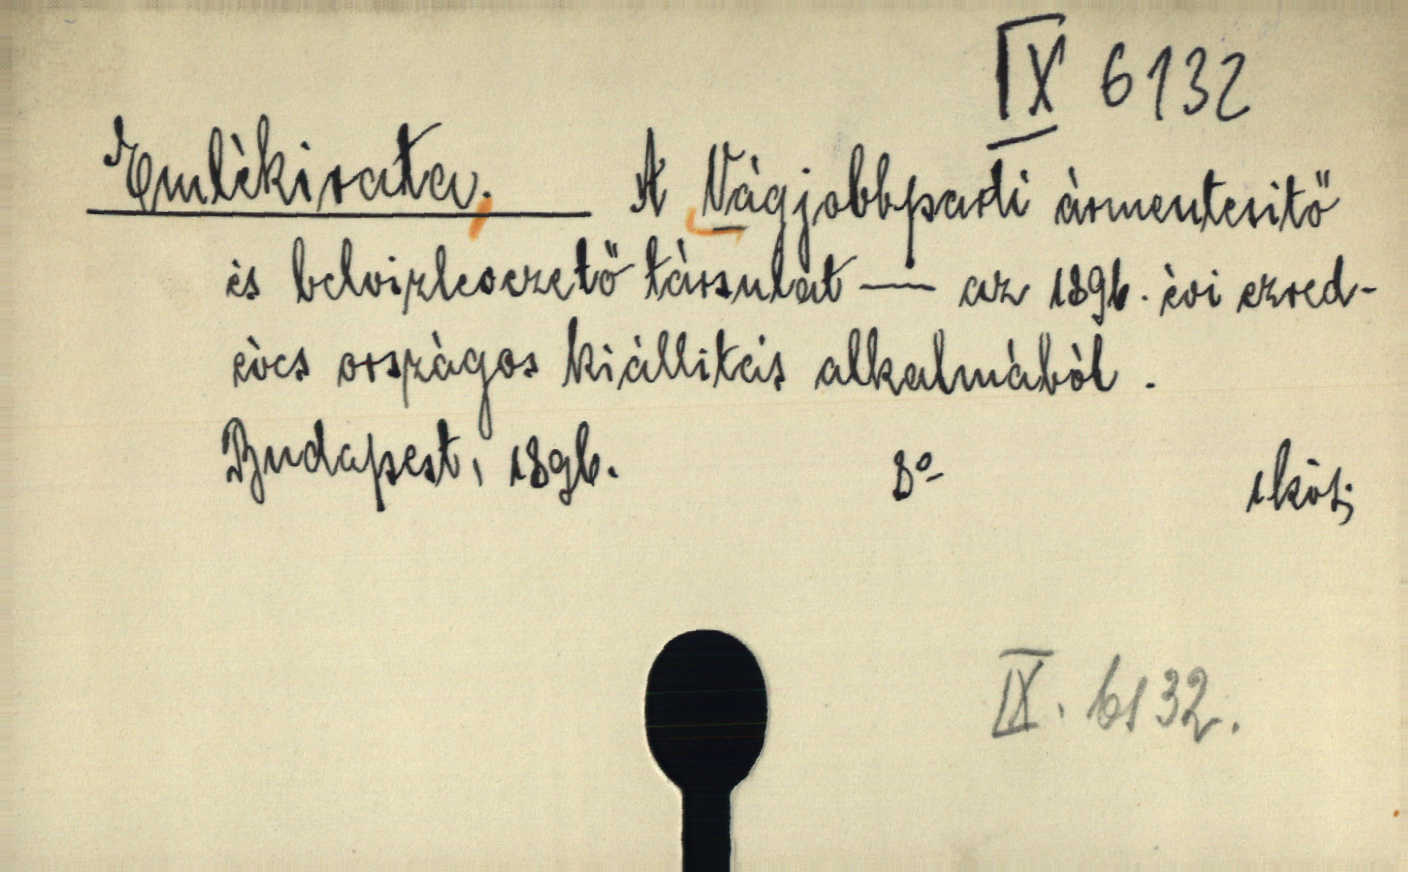 IX 6132
Emlékirata. A Vágjobbparti ármentesitő
és belvizlevezető társulat — az 1896. évi ezred-
éves országos kiállitás alkalmából.
Budapest, 1896. 8° 1 köt;
IX. 6132.